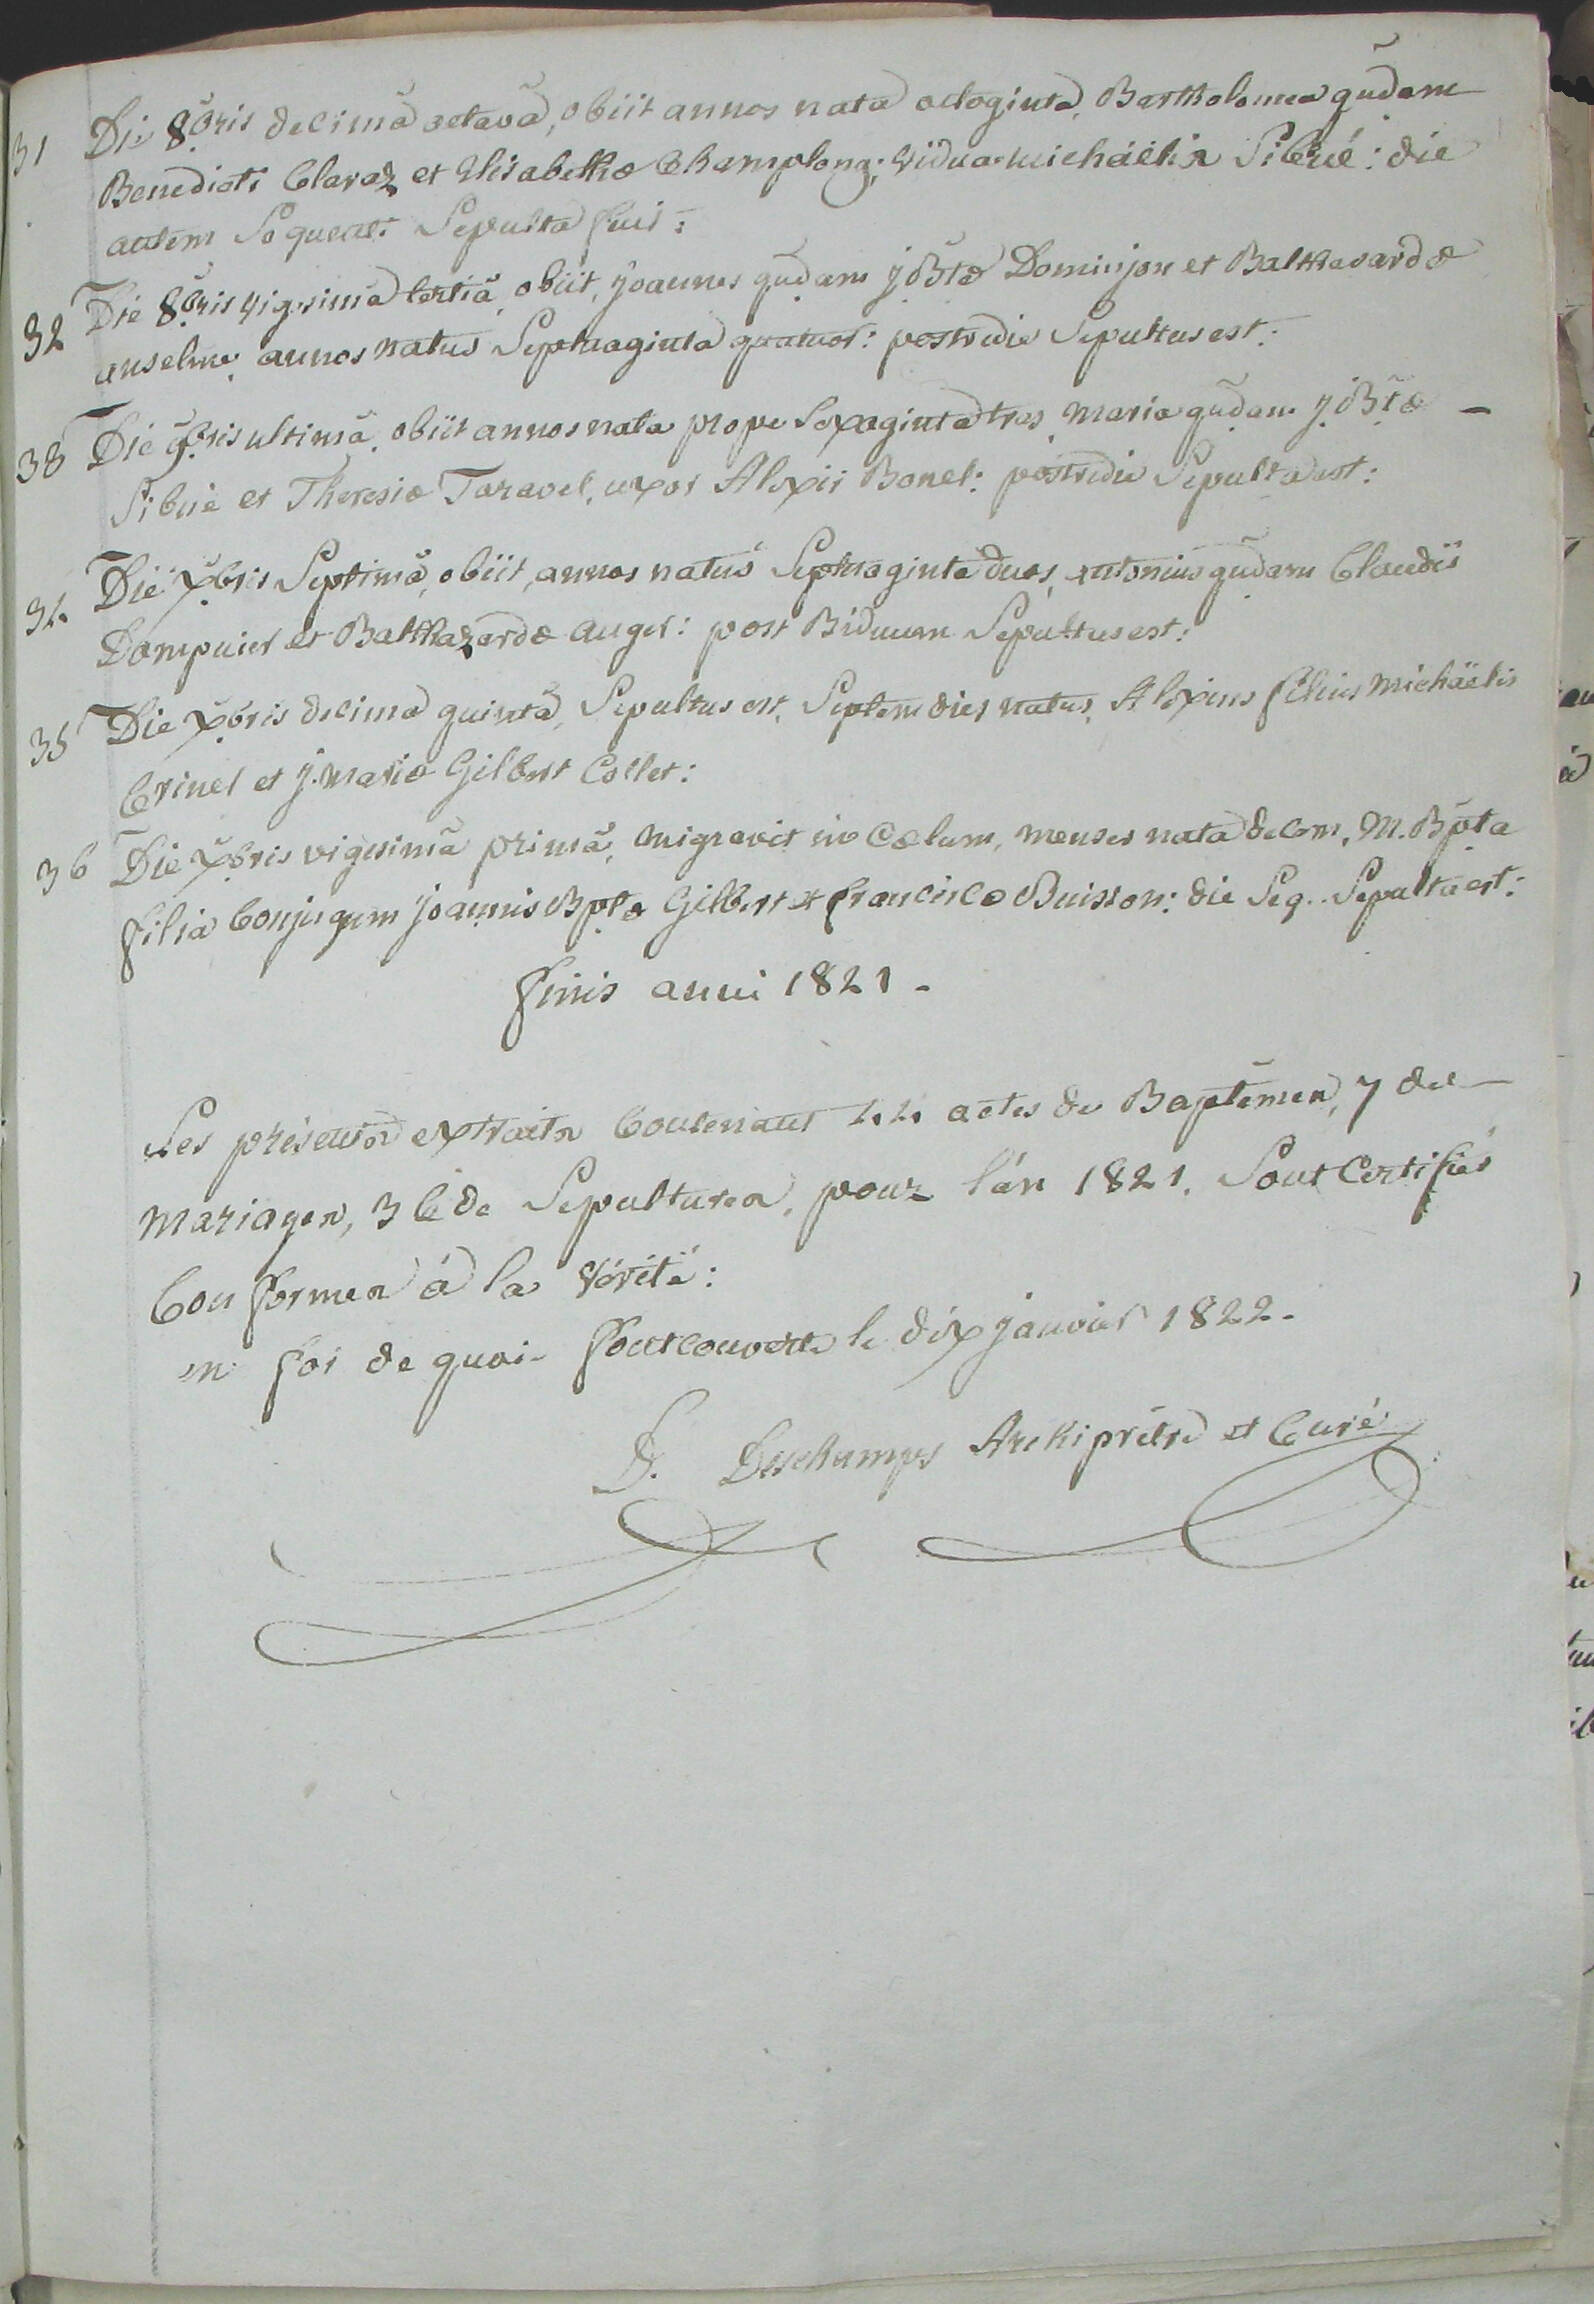 31 Die 8bris decimâ octavâ, obiit annos nata octoginta, Bartholomea qūdam
Benedicti Claraz et Elisabethæ Champlong; vidua michäelis Sibué: die
autem Sequenti Sepulta fuit:
32 Die 8bris vigesimâ tertiâ, obiit, joannes qūdam j Btæ Dominjon et Balthasardæ
anselme, annos natus Septuaginta quatuor: postridie Sepultus est:
33 Die 9bris ultimâ, obiit annos nata prope Sexaginta tres, maria qūdam j Btæ –
Sibué et Theresiæ Taravel, uxor Alexii Bonel: postridie Sepulta est:
34 Die Xbris Septimâ, obiit, annos natus Septuaginta duos, antonius qūdam Claudii
Dompnier et Balthazardæ auger: post Biduum Sepultus est:
35 Die Xbris decimâ quintâ, Sepultus est, Septem dies natus, Alexius filius michäelis
Crinel et j. mariæ Gilbert Collet:
36 Die Xbris vigesimâ primâ, migravit in Cœlum, menses nata decem, M. Bpta
filia Conjugum joannis Bptæ Gilbert et franciscæ Buisson: die Seq. Sepulta est:
finis anni 1821 -
Les présents extraits Contenant 44 actes de Baptêmes, 7 de
mariages, 36 de Sepultures, pour l'an 1821, Sont Certifiés
Conformes à la vérité:
en foi de quoi - fontcouverte le dix janvier 1822 -
D. Deschamps Archiprêtre et Curé